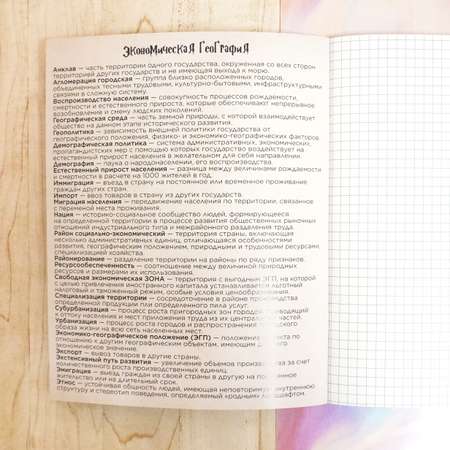 ЭКОНОМИЧЕСКАЯ ГЕОГРАФИЯ
Анклав — часть территории одного государства, окруженная со всех сторон
территорией других государств и не имеющая выхода к морю.
Агломерация городская — группа близко расположенных городов,
объединенных тесными трудовыми, культурно-бытовыми, инфраструктурными
связями в сложную систему.
Воспроизводство населения — совокупность процессов рождаемости,
смертности и естественного прироста, которые обеспечивают непрерывное
возобновление и смену людских поколений.
Географическая среда — часть земной природы, с которой взаимодействует
общество на данном этапе исторического развития.
Геополитика — зависимость внешней политики государства от
географического положения, физико- и экономико-географических факторов.
Демографическая политика — система административных, экономических,
пропагандистских мер с помощью которых государство воздействует на
естественный прирост населения в желательном для себя направлении.
Демография — наука о народонаселении, его воспроизводстве.
Естественный прирост населения — разница между величинами рождаемости
и смертности в расчете на 1000 жителей в год.
Иммиграция — въезд в страну на постоянное или временное проживание
граждан других стран.
Импорт — ввоз товаров в страну из других государств.
Миграция населения — передвижение населения по территории, связанное
с переменой места проживания.
Нация — историко-социальное сообщество людей, формирующееся
на определенной территории в процессе развития общественных рыночных
отношений индустриального типа и межрайонного разделения труда.
Район социально-экономический — территория страны, включающая
несколько административных единиц, отличающаяся особенностями
развития, географическим положением, природными и трудовыми ресурсами,
специализацией хозяйства.
Районирование — разделение территории на районы по ряду признаков.
Ресурсообеспеченность — соотношение между величиной природных
ресурсов и размерами их использования.
Свободная экономическая ЗОНА — территория с выгодным ЭГП, на которой
с целью привлечения иностранного капитала устанавливается льготный
налоговый и таможенный режим, особые условия ценообразования.
Специализация территории — сосредоточение в районе производства
определенной продукции или определенного типа услуг.
Субурбанизация — процесс роста пригородных зон городов, приводящий
к оттоку населения и мест приложения труда из их центральных частей.
Урбанизация — процесс роста городов и распространения городского
образа жизни на всю сеть населенных мест.
Экономико-географическое положение (ЭГП) — положение объекта по
отношению к другим географическим объектам, имеющим для него
экономическое значение.
Экспорт — вывоз товаров в другие страны.
Экстенсивный путь развития — увеличение объемов производства за счет
количественного роста производственных единиц.
Эмиграция — выезд граждан из своей страны в другую на постоянное
жительство или на длительный срок.
Этнос — устойчивая общность людей, имеющая неповторимую внутреннюю
структуру и стереотип поведения, определяемый «родным» ландшафтом.